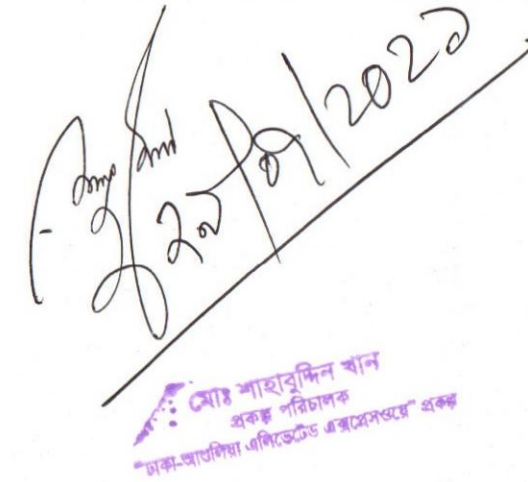 ২৯/০৭/২০২১
মোঃ শাহাবুদ্দিন খান
প্রকল্প পরিচালক
"ঢাকা-আশুলিয়া এলিভেটেড এক্সপ্রেসওয়ে" প্রকল্প